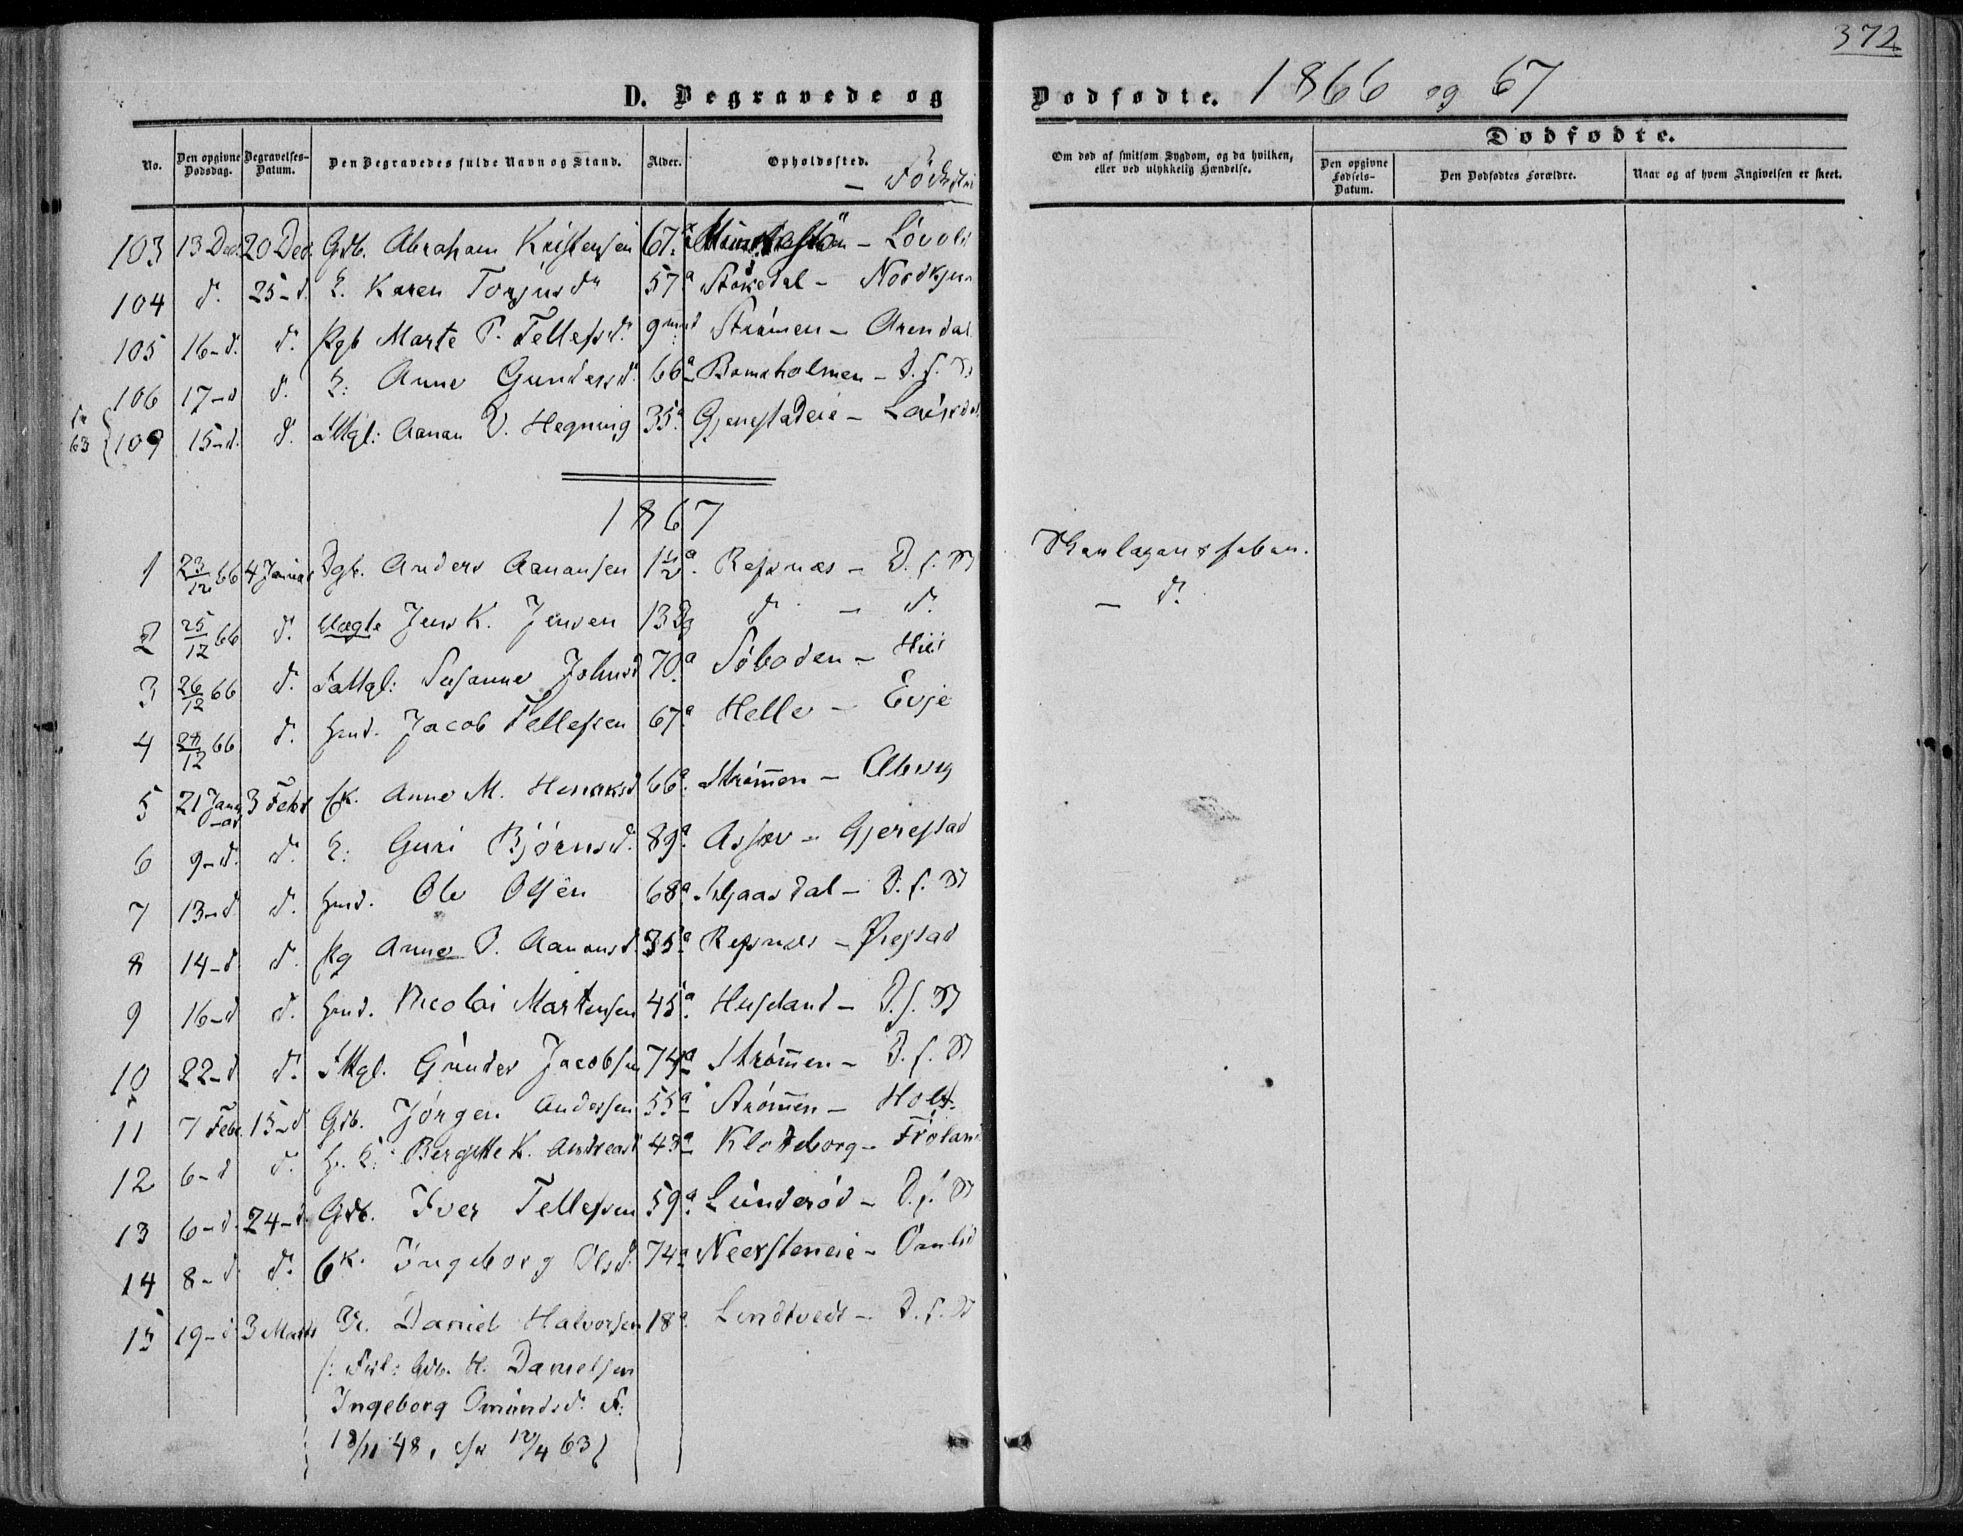 372
D. Begravede og Dødfødte. 1866 og 67
Dødfødte.
No. Den opgivne Dødsdag. Begravelses-Datum. Den Begravedes fulde Navn og Stand. Alder. Opholdssted. Om død af smitsom Sygdom, og da hvilken, eller ved ulykkelig Hændelse. Den opgivne Fødsels-Datum. Den Dødfødtes Forældre. Naar og af hvem Angivelsen er skeet.
— Fødested
103 13 Dec. 20 Dec. Gdb. Abraham Kristensen 67 a – Løvold
104 d. 25–d. E. Karen Torjusd. 57 a Stokedal – Nordkjern
105 16–d. d. Pgb Marte P. Tellefsd. 9 Strømen – Arendal
106 17–d d. E: Anne Gundersd. 66 a Bomsholmen – D. s. St
63 109 15–d. d. Fttgl: Aanan V. Hegning 35 a Gjenestadeie –
1867
1 23/12 66 4 Januar Dgb. Anders Aanansen 1 1/2 a. Refsnæs – D. s. St Skarlagensfeber.
2 25/12 66 d. Uægte Jens K. Jensen 13 d – d. — d.
3 26/12 66 d. Fattgl: Susanne Johnsd 70 a Søboden – Hiis
4 12 66 d. Hmd. Jacob Tellefsen 67 a Helle – Evje
5 21 Januar 3 Febr Ek. Anne M. Henriksd 66 a. Strømmen –
6 9–d. d. E: Guri Bjørnsd. 89 a. Asdøv – Gjerestad
7 13–d d. Hmd. Ole Olsen 68 a D. s. St
8 14–d d. Pg Anne P. Aanonsd. 35 a Refsnæs – Øiestad
9 16–d d. Hmd. Nicolai Martensen 45 a Huseland – D. s. St
10 22–d d. Fttgl. Gunder Jacobsen 74 a Strømmen – D. s. St
11 7 Febr. 15–d Gdb. Jørgen Andersen 55 a Strømmen – Holt
12 6–d d. Bergitte K. Andreasd 43 a Kloteborg – Froland
13 6–d. 24–d. Gdb. Iver Tellefsen 59 a Lunderød – D. s. St
14 8–d d. Ek. Ingeborg Olsd. 74 a Neersteneie – Omlid
15 19–d 3 Marts Daniel Halvorsen 18 a. Lindtveit – D. s. St
/: Forl: Gdb. H. Danielsen
Ingeborg Omundsd. F:
18/11 48, 12/4 63